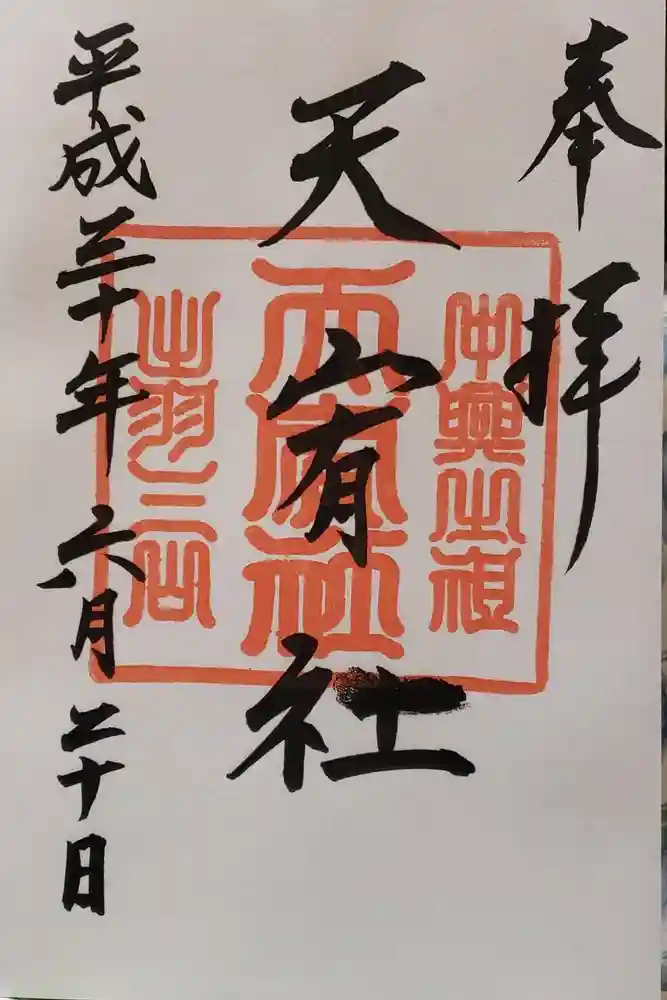 奉拝
中興之祖
天宥社
天宥社
出羽三山
平成三十年六月二十日